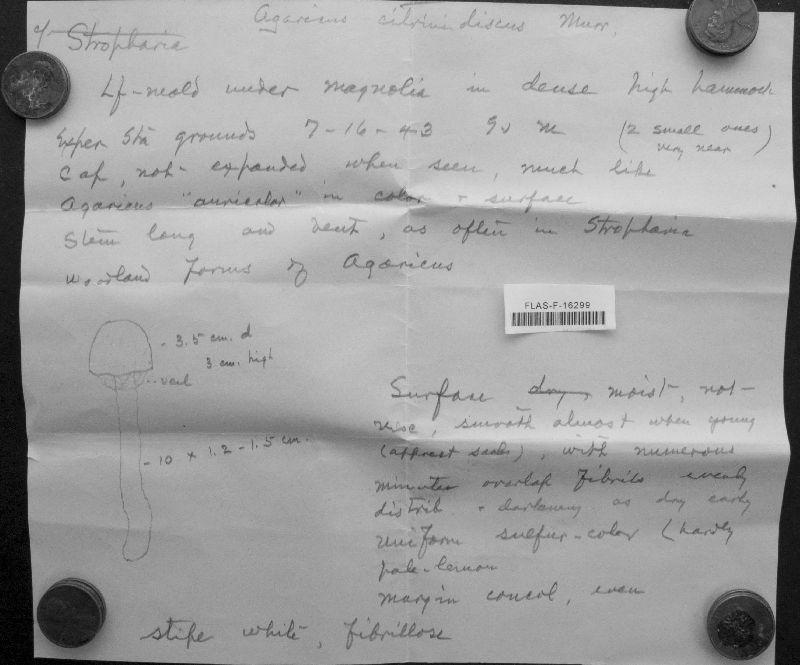 Agaricus citrinidiscus Murr.
cf Stropharia
Lf-mold under magnolia in dense high hammock
Exper Sta grounds 7-16-43 (2 small ones)
very near
Cap, not expanded when seen, much like
Agaricus "auricolor" in color + surface
Stem long and bent, as often in Stropharia
woodland forms of Agaricus
FLAS-F-16299
- 3.5 cm. d
3 cm. high
-- veil
- 10 x 1.2 - 1.5 cm.
Surface dry, moist, not
visc, smooth almost when young
(apprest scales), with numerous
minute overlap fibrils evenly
distrib + darkening as dry early
uniform sulfur-color (hardly
pale-lemon
margin concol, even
stipe white, fibrillose